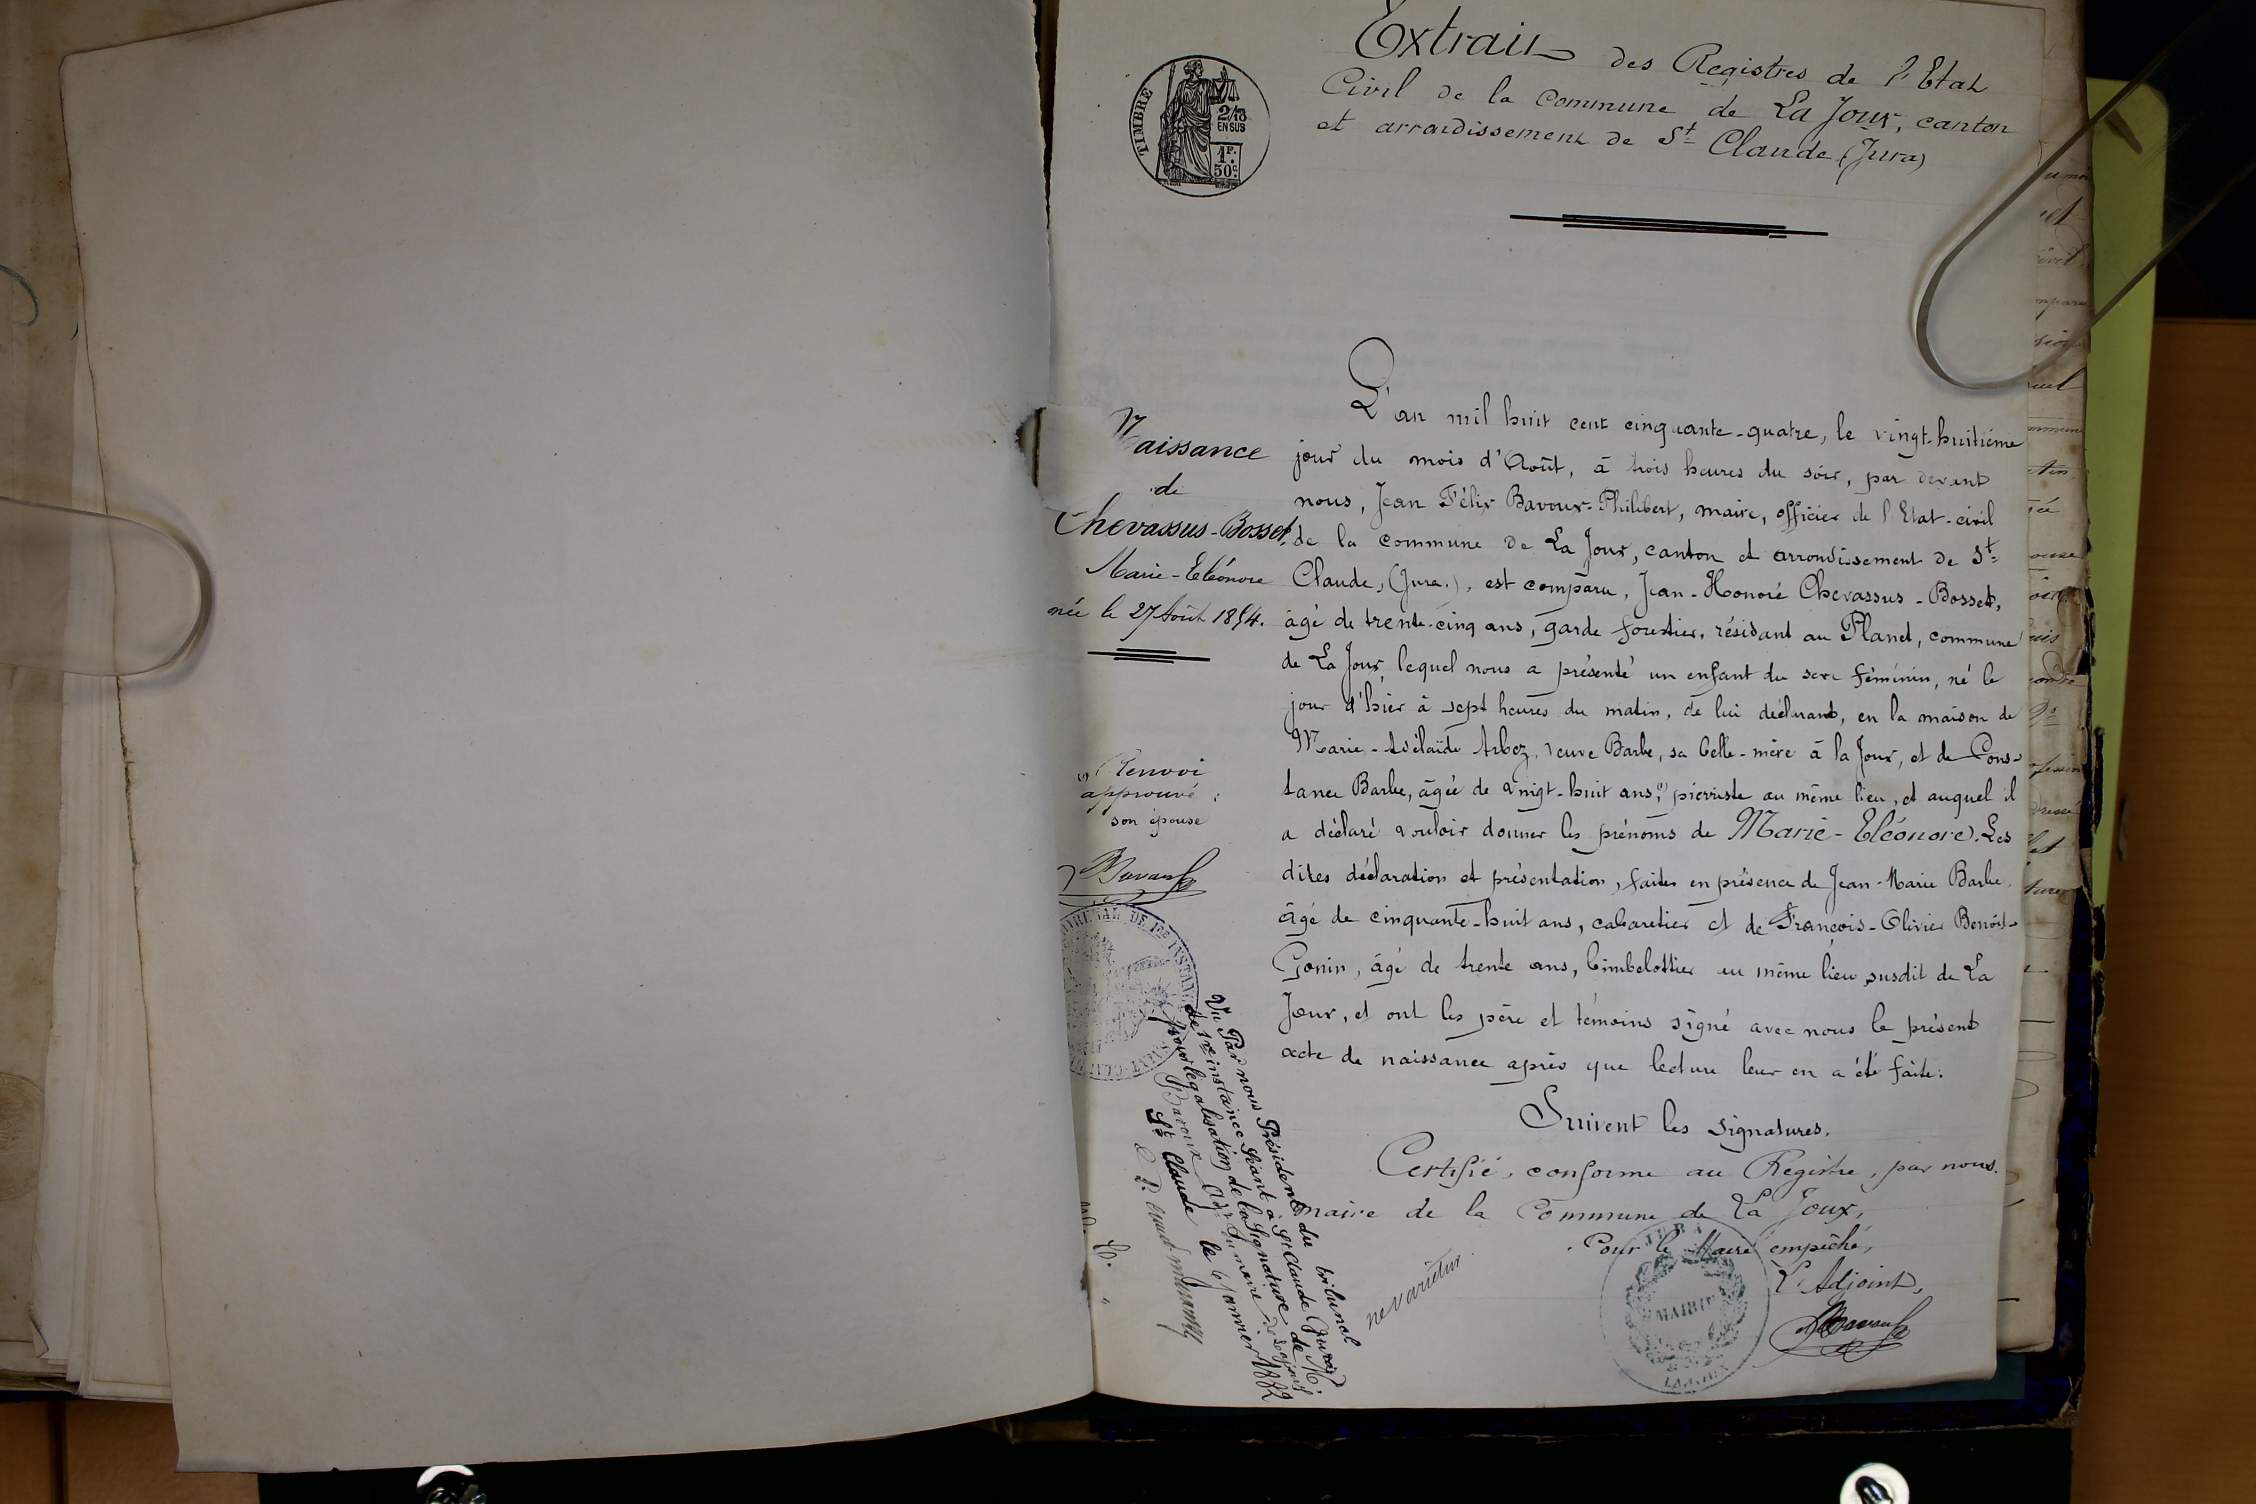 Extrait des Registres de l'Etat
Civil de la Commune de La Joux, canton
et arrondissement de St Claude (Jura)
TIMBRE
2/10
EN SUS
1F.
50c.
Naissance
de
Chevassus-Bosset,
Marie-Eléonore
née le 27 Août 1854.
L'an mil huit cent cinquante-quatre, le vingt-huitième
jour du mois d'Août, à trois heures du soir, par devant
nous, Jean Félix Bavoux-Philibert, maire, officier de l'Etat-civil
de la commune de La Joux, canton et arrondissement de St
Claude, (Jura.), est comparu, Jean-Honoré Chevassus-Bosset,
âgé de trente-cinq ans, garde forestier, résidant au Planet, commune
de La Joux, lequel nous a présenté un enfant du sexe féminin, né le
jour d'hier à sept heures du matin, de lui déclarant, en la maison de
Marie-Adélaïde Arbez, veuve Barbe, sa belle-mère à la Joux, et de Cons-
tance Barbe, âgée de vingt-huit ans, (1) pierriste au même lieu, et auquel il
a déclaré vouloir donner les prénoms de Marie-Eléonore. Les
dites déclaration et présentation, faites en présence de Jean-Marie Barbe,
âgé de cinquante-huit ans, cabaretier et de François-Olivier Benoit-
Gonin, âgé de trente ans, bimbelottier au même lieu susdit de La
Joux, et ont les père et témoins signé avec nous le présent
acte de naissance après que lecture leur en a été faite.
Suivent les signatures.
Certifié, conforme au Registre, par nous.
maire de la Commune de La Joux,
Pour le Maire empêché,
L'Adjoint,
JURA
MAIRIE
(1) Renvoi
approuvé:
son épouse
TRIBUNAL DE 1re INSTANCE
SAINT-CLAUDE
Vu Par nous Président du tribunal
de 1re instance séant à St Claude (Jura)
pour légalisation de la signature de M.
Bavoux adjt au maire de La Joux
St Claude le 6 Janvier 1882
ne varietur